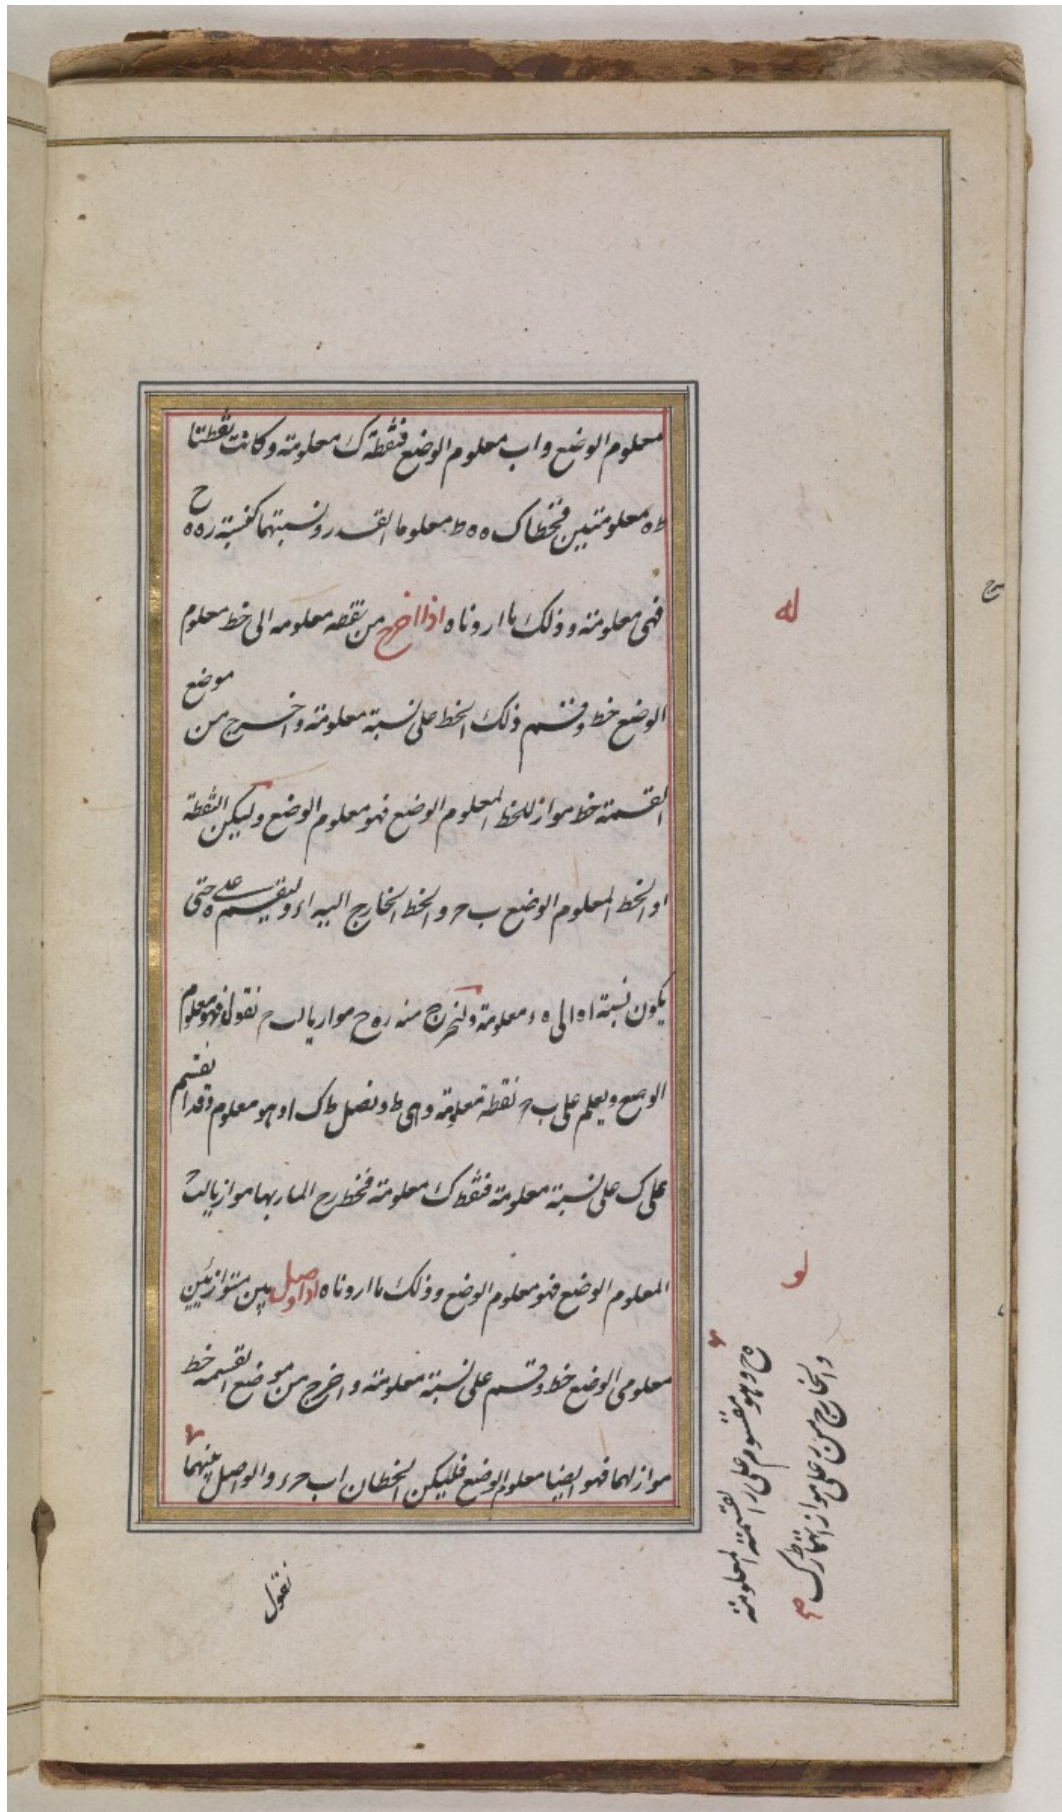 معلوم الوضع واب معلوم الوضع فنقطة ك معلومة وكانت نقطتا
ط ه معلومتين فخطا ك ه ه ط معلوما القدر ونسبتهما كنسبة ر ه ه ح
فهى معلومة وذلك ما اردناه اذا اخرج من نقطه معلومه الى خط معلوم
له
الوضع خط وقسم ذلك الخط على نسبة معلومة واخرج من موضع
القسمة خط مواز للخط المعلوم الوضع فهو معلوم الوضع وليكن النقطة
ا والخط المعلوم الوضع ب ح والخط الخارج اليه اء وليقسم على ه حتى
يكون نسبة ا ه الى ه ء معلومة ولنخرج منه ر ه ح موازيا لب ح نقول فهو معلوم
الوضع ويعلم على ب ح نقطة معلومة وهى ط ونصل ط ك ا وهو معلوم وقد انقسم
على ك على نسبة معلومة فنقطة ك معلومة فخط رح المار بها موازيا لب ح
المعلوم الوضع فهو معلوم الوضع وذلك ما اردناه اذا وصل بين متوازيين
لو
معلومى الوضع خط وقسم على نسبة معلومة واخرج من موضع القسمه خط
مواز لهما فهو ايضا معلوم الوضع فليكن الخطان اب ح ء والواصل بينهما
ه ح وهو مقسوم على ر القسمة المعلومة
والخارج من ر على موازاتهما رك
نقول